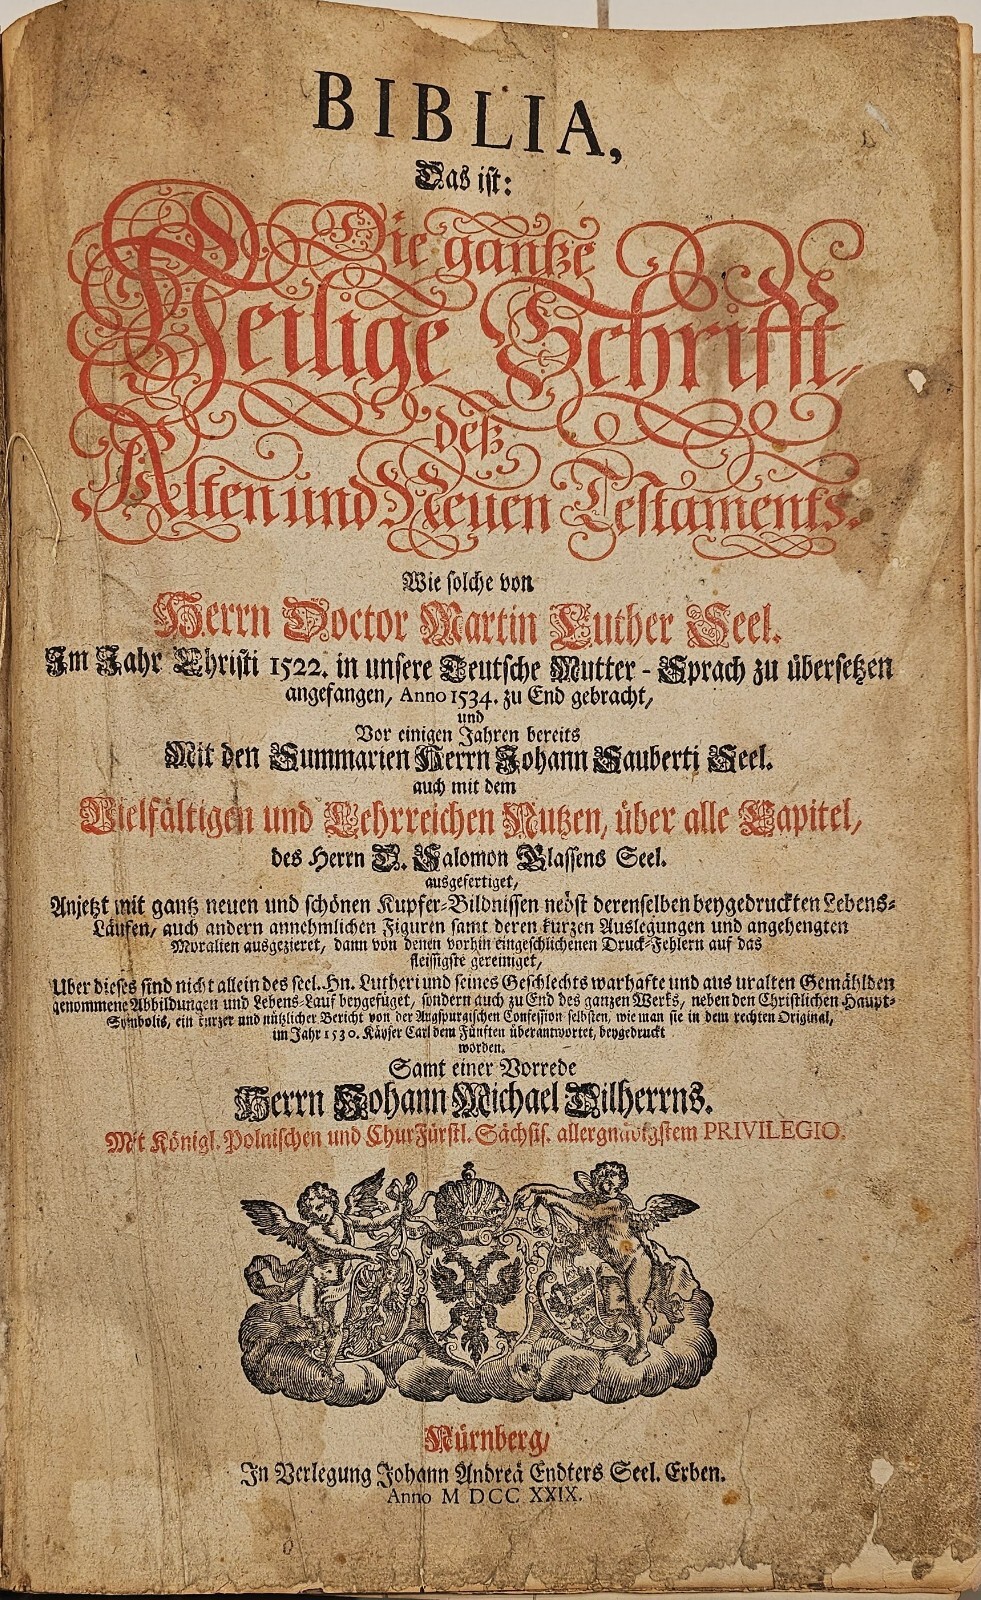 BIBLIA,
Das ist:
Die gantze
Heilige Schrifft,
deß
Alten und Neuen Testaments.
Wie solche von
Herrn Doctor Martin Luther Seel.
Im Jahr Christi 1522. in unsere Teutsche Mutter - Sprach zu übersetzen
angefangen, Anno 1534. zu End gebracht,
und
Vor einigen Jahren bereits
Mit den Summarien Herrn Johann Sauberti Seel.
auch mit dem
Vielfältigen und Lehrreichen Nutzen, über alle Capitel,
des Herrn D. Salomon Glassens Seel.
ausgefertiget,
Anjetzt mit gantz neuen und schönen Kupfer-Bildnissen nebst derenselben beygedruckten Lebens-
Läufen, auch andern annehmlichen Figuren samt deren kurzen Auslegungen und angehengten
Moralien ausgezieret, dann von denen vorhin eingeschlichenen Druck-Fehlern auf das
fleissigste gereiniget,
Uber dieses sind nicht allein des seel. Hn. Lutheri und seines Geschlechts warhafte und aus uralten Gemählden
genommene Abbildungen und Lebens-Lauf beygefüget, sondern auch zu End des ganzen Werks, neben den Christlichen Haupt-
Symbolis, ein kurzer und nützlicher Bericht von der Augspurgischen Confession selbsten, wie man sie in dem rechten Original,
im Jahr 1530. Käyser Carl dem Fünften überantwortet, beygedruckt
worden.
Samt einer Vorrede
Herrn Johann Michael Dilherrns.
Mit Königl. Polnischen und ChurFürstl. Sächsis. allergnädigstem PRIVILEGIO.
Nürnberg,
In Verlegung Johann Andreä Endters Seel. Erben.
Anno M DCC XXIX.